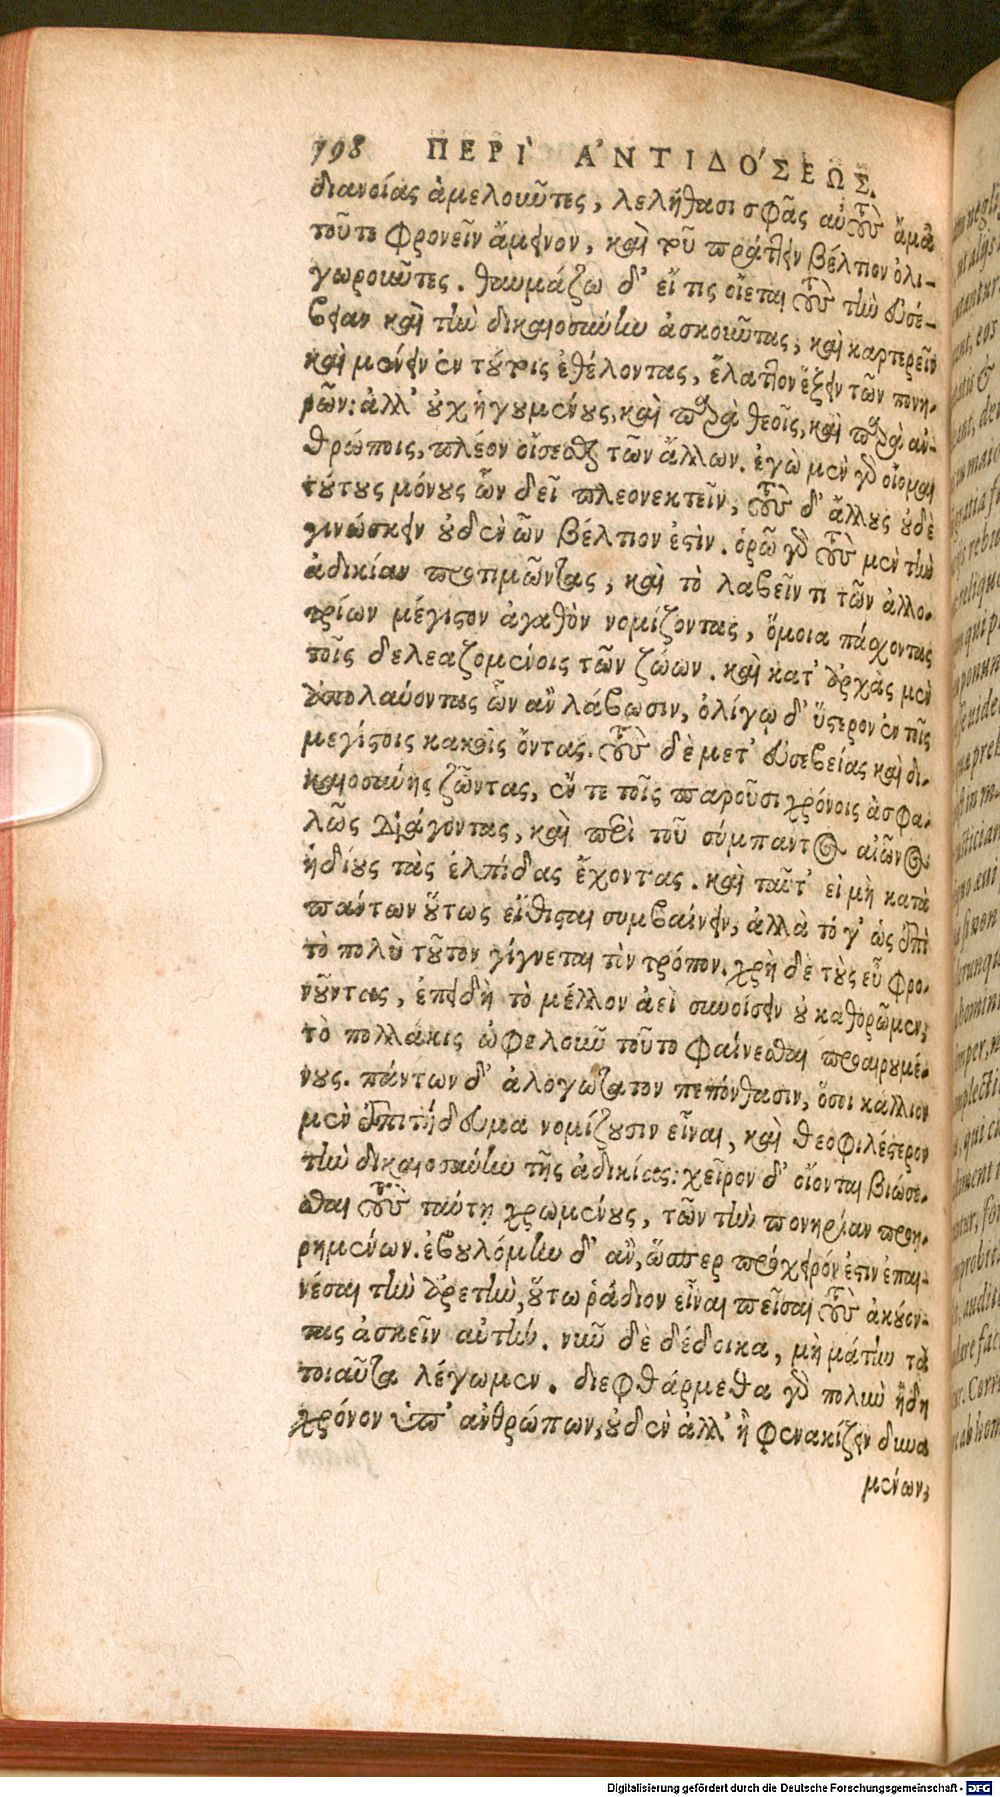 798 ΠΕΡΙ` Α᾿ΝΤΙΔΟ´ΣΕΩΣ.
διανοίας ἀμελοῦντες, λελήθασι σφᾶς αὐτοὺς ἅμα
τοῦτε φρονεῖν ἄμεινον, καὶ τοῦ πράττειν βέλτιον ὀλι-
γωροῦντες. θαυμάζω δ' εἴ τις οἴεται τοὺς τὴν εὐσέ-
βειαν καὶ τὴν δικαιοσύνην ἀσκοῦντας, καὶ καρτερεῖν
καὶ μένειν ἐν τούτοις ἐθέλοντας, ἔλαττον ἕξειν τῶν πονη-
ρῶν: ἀλλ' οὐχ ἡγουμένους, καὶ παρὰ θεοῖς, καὶ παρὰ ἀν-
θρώποις, πλέον οἴσεσθαι τῶν ἄλλων. ἐγὼ μὲν γὰρ οἶομαι
τούτους μόνους ὧν δεῖ πλεονεκτεῖν, τοὺς δ' ἄλλους οὐδὲ
γινώσκειν οὐδὲν ὧν βέλτιον ἐστὶν. ὁρῶ γὰρ τοὺς μὲν τὴν
ἀδικίαν προτιμῶντας, καὶ τὸ λαβεῖν τι τῶν ἀλλο-
τρίων μέγιστον ἀγαθὸν νομίζοντας, ὅμοια πάσχοντας
τοῖς δελεαζομένοις τῶν ζώων. καὶ κατ' ἀρχὰς μὲν
ἀπολαύοντας ὧν ἂν λάβωσιν, ὀλίγῳ δ' ὕστερον ἐν τοῖς
μεγίστοις κακοῖς ὄντας. τοὺς δὲ μετ' εὐσεβείας καὶ δι-
καιοσύνης ζῶντας, ἔν τε τοῖς παροῦσι χρόνοις ἀσφα-
λῶς διάγοντας, καὶ περὶ τοῦ σύμπαντος αἰῶνος
ἡδίους τὰς ἐλπίδας ἔχοντας. καὶ ταῦτ' εἰ μὴ κατὰ
πάντων οὕτως εἴθισται συμβαίνειν, ἀλλὰ τό γ' ὡς ἐπὶ
τὸ πολὺ τοῦτον γίγνεται τὸν τρόπον. χρὴ δὲ τοὺς εὖ φρο-
νοῦντας, ἐπειδὴ τὸ μέλλον ἀεὶ συνοίσειν οὐ καθορῶμεν,
τὸ πολλάκις ὠφελοῦν τοῦτο φαίνεσθαι προαιρουμέ-
νους. πάντων δ' ἀλογώτατον πεπόνθασιν, ὅσοι κάλλιον
μὲν ἐπιτήδευμα νομίζουσιν εἶναι, καὶ θεοφιλέστερον
τὴν δικαιοσύνην τῆς ἀδικίας: χεῖρον δ' οἴονται βιώσε-
σθαι τοὺς ταύτῃ χρωμένους, τῶν τὴν πονηρίαν προῃ-
ρημένων. ἐβουλόμην δ' ἂν, ὥσπερ πρόχειρόν ἐστιν ἐπαι-
νέσαι τὴν ἀρετὴν, οὕτω ῥάδιον εἶναι πεῖσαι τοὺς ἀκούον-
τας ἀσκεῖν αὐτὴν. νῦν δὲ δέδοικα, μὴ μάτην τὰ
τοιαῦτα λέγωμεν. διεφθάρμεθα γὰρ πολὺν ἤδη
χρόνον ὑπ' ἀνθρώπων, οὐδὲν ἀλλ' ἢ φενακίζειν δυνα
μένων,
Digitalisierung gefördert durch die Deutsche Forschungsgemeinschaft - DFG